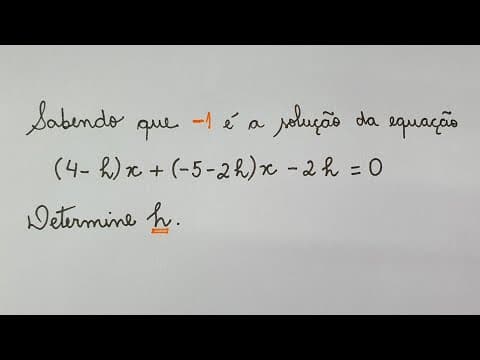 Sabendo que -1 é a solução da equação
(4-h)x + (-5-2h)x - 2h = 0
Determine h.